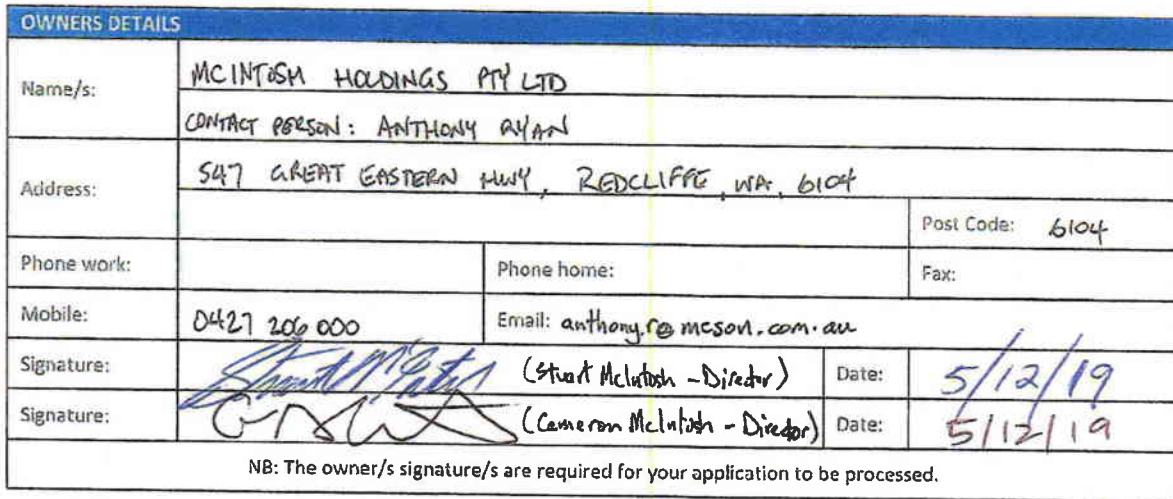 OWNERS DETAILS
Name/s: MCINTOSH HOLDINGS PTY LTD
CONTACT PERSON: ANTHONY RYAN
Address: 547 GREAT EASTERN HWY, REDCLIFFE, WA, 6104
Post Code: 6104
Phone work: Phone home: Fax:
Mobile: 0427 206 000 Email: anthony.r@mcson.com.au
Signature: Stuart McIntosh (Stuart McIntosh - Director) Date: 5/12/19
Signature: (Cameron McIntosh - Director) Date: 5/12/19
NB: The owner/s signature/s are required for your application to be processed.